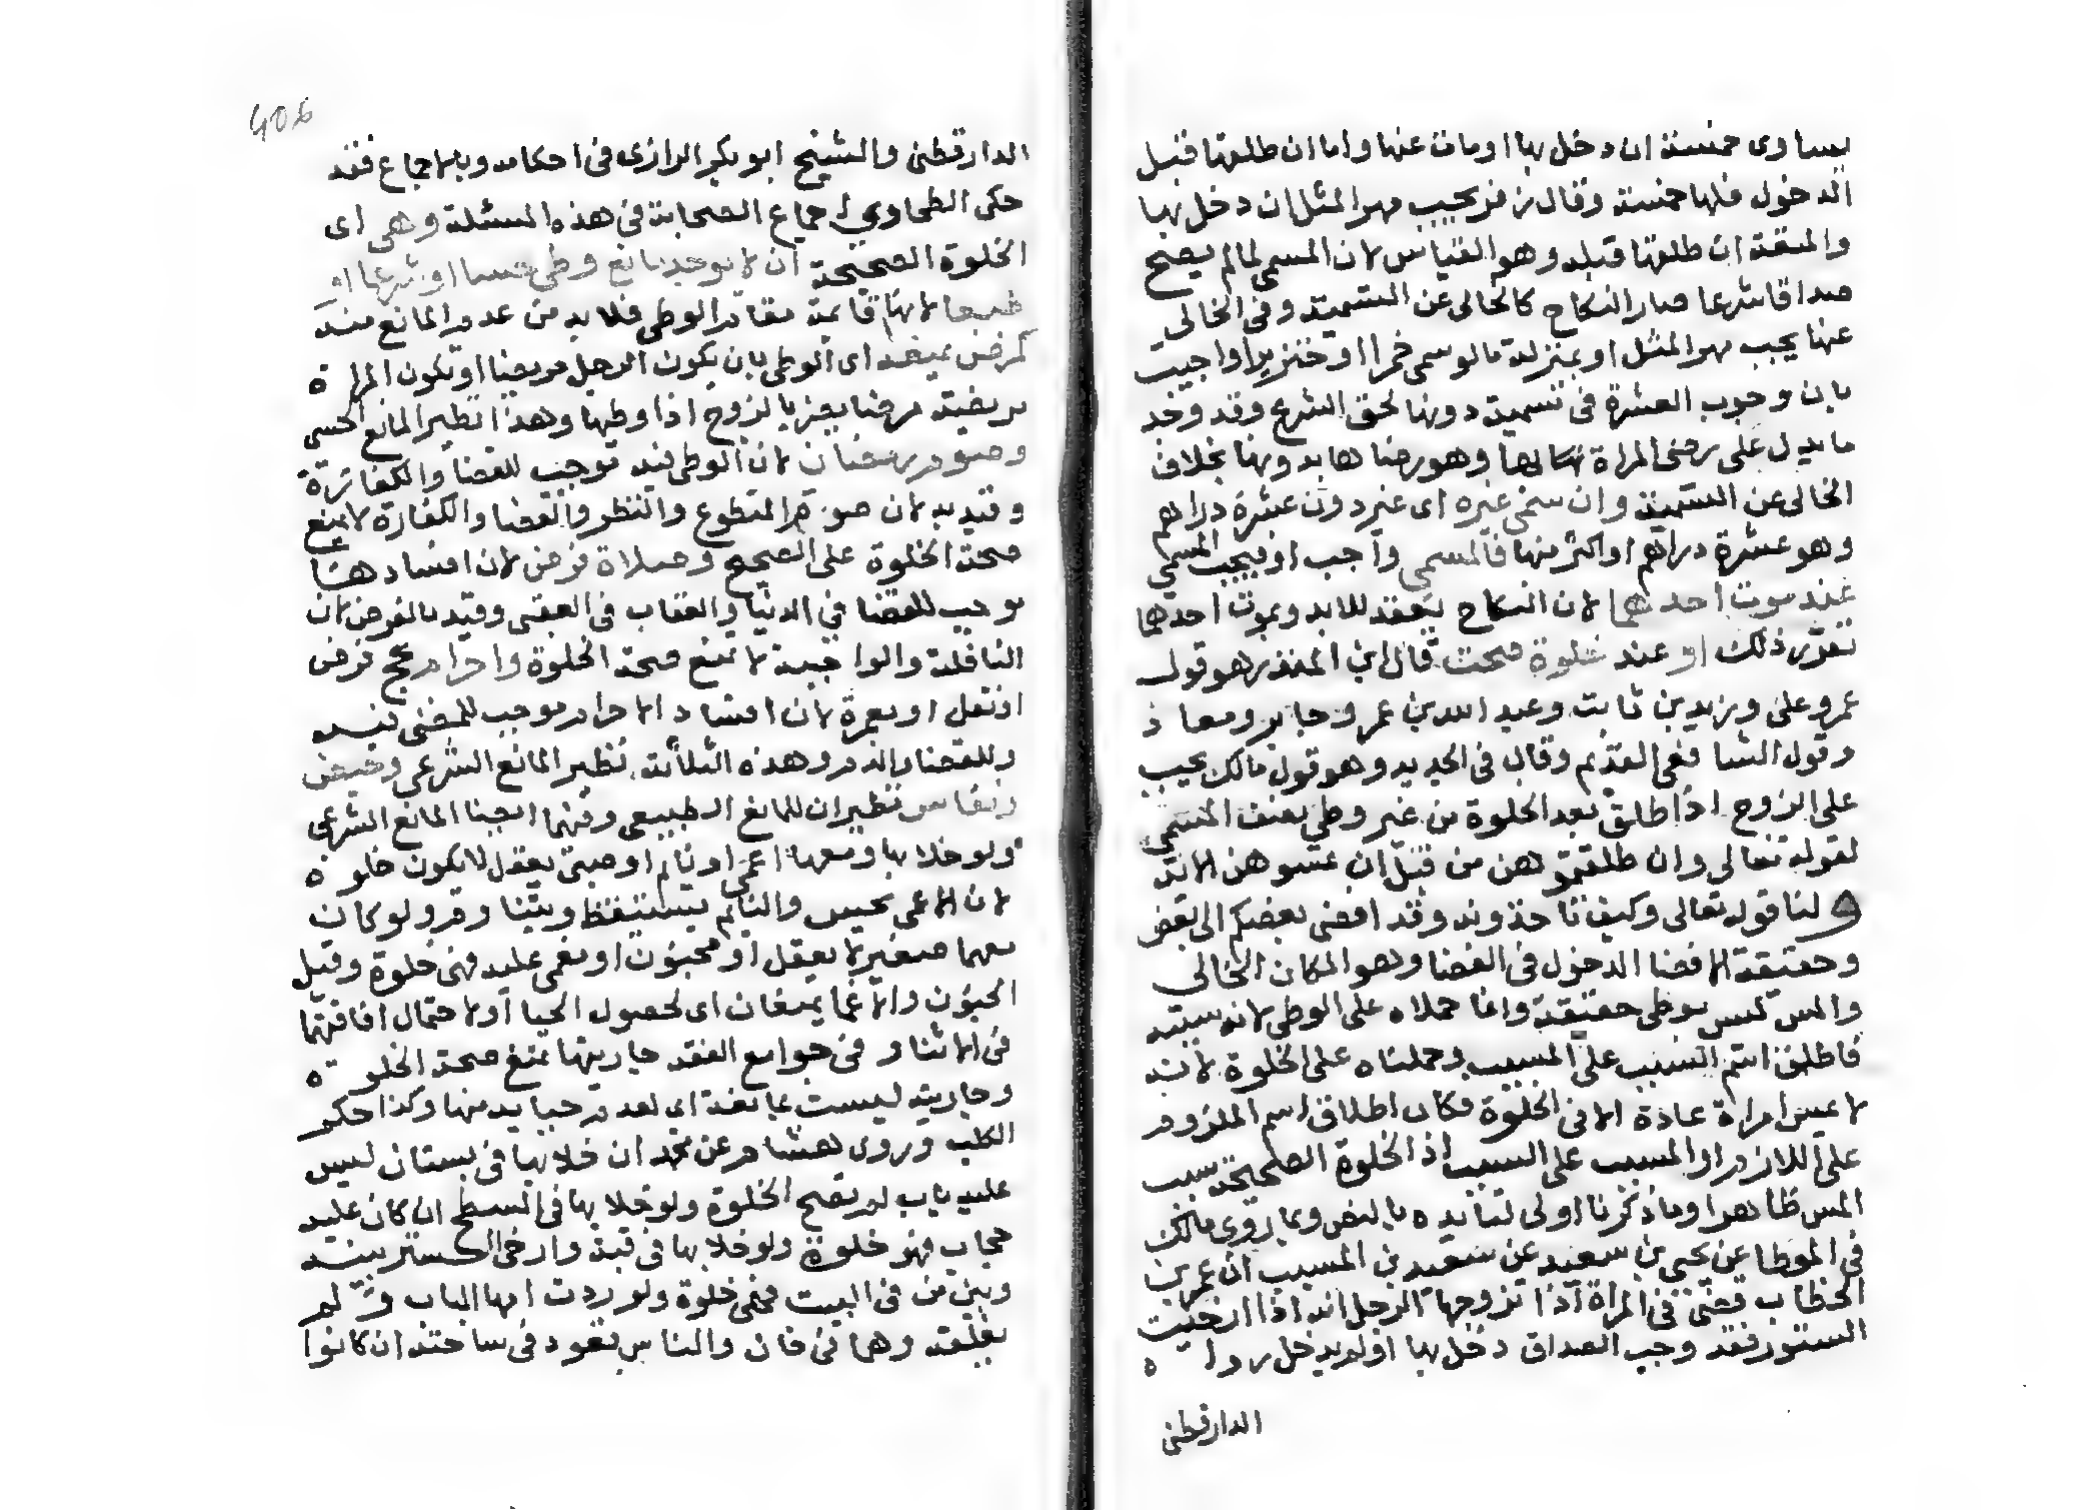 يساوى خمسة ان دخل بها او مات عنها واما ان طلقها قبل
الدخول فلها خمسة وقال زفر يجب مهر المثل ان دخل بها
والمتعة ان طلقها قبله وهو القياس لان المسمى لما لم يصح
صداقا شرعا صار النكاح كالخالى عن التسمية وفى الخالى
عنها يجب مهر المثل او بمنزلة ما لو سمى خمرا او خنزيرا واجيب
بان وجوب العشرة فى تسمية دونها لحق الشرع وقد وجد
ما يدل على رضى المراة وهو رضاها بدونها بخلاف
الخالى عن التسمية وان سمى غيره اى غير دون عشرة دراهم
وهو عشرة دراهم او اكثر منها فالمسمى واجب او فيجب المسمى
عند موت احدهما لان النكاح يعقد للابد وبموت احدهما
تقرر ذلك او عند خلوة صحت قال ابن المنذر هو قول
عمر وعلى وزيد بن ثابت وعبد الله بن عمر وجابر ومعاذ
وقول الشافعى القديم وقال فى الجديد وهو قول مالك يجب
على الزوج اذا طلق بعد الخلوة من غير وطئ نصف المسمى
لقوله تعالى وان طلقتموهن من قبل ان تمسوهن الاية
ولنا قوله تعالى وكيف تاخذونه وقد افضى بعضكم الى بعض
وحقيقة الافضا الدخول فى الفضا وهو المكان الخالى
والمس ليس بوطى حقيقة وانما حملاه على الوطى لانه سببه
فاطلق اسم السبب على المسبب وحملناه على الخلوة لانه
لا يمس امراة عادة الا فى الخلوة فكان اطلاق اسم الملزوم
على اللازم او المسبب على السبب اذ الخلوة الصحيحة سبب
المس ظاهرا وما ذكرنا اولى لتايده بالنص وبما روى مالك
فى الموطا عن يحيى بن سعيد عن سعيد بن المسيب ان عمر بن
الخطاب قضى فى المراة اذا تزوجها الرجل انه اذا ارخيت
الستور فقد وجب الصداق دخل بها او لم يدخل رواه
الدارقطنى
406
الدارقطنى والشيخ ابو بكر الرازى فى احكامه وبالاجماع فقد
حكى الطحاوى اجماع الصحابة فى هذه المسئلة وهى اى
الخلوة الصحيحة ان لا يوجد مانع وطى حسا او شرعا او
طبعا لانها قائمة مقام الوطى فلا بد من عدم المانع منه
كمرض يمنعه اى الوطى بان يكون الرجل مريضا او تكون المراة
مريضة مرضا يضر بالزوج اذا وطيها وهذا نظير المانع الحسى
وصوم رمضان لان الوطى فيه توجب للقضا والكفارة
وقيد به لان صوم المتطوع والنظر والقضا والكفارة لا يمنع
صحة الخلوة على الصحيح وصلاة فرض لان افسادها
يوجب للقضا فى الدنيا والعقاب فى العقبى وقيد بالفرض لان
النافلة والواجبة لا تمنع صحة الخلوة واحرام بحج فرض
او نفل او بعمرة لان افساد الاحرام موجب للمضى فيه
وللقضا والدم وهذه الثلاثة نظير المانع الشرعى وحيض
ونفاس نظيران للمانع الطبيعى وفيهما ايضا المانع الشرعى
ولو خلا بها ومعها اعمى او نائم او صبى يعقل لا يكون خلوة
لان الاعمى يحس والنائم يستيقظ ويتناوم ولو كان
معهما صغير لا يعقل او مجنون او مغمى عليه فهى خلوة وقيل
الجنون والاغما يمنعان اى لحصول الحيا او لاحتمال افاقتهما
فى الاثنا وفى جوامع الفقه جاريتها تمنع صحة الخلوة
وجاريته ليست بمانعة اى لعدم حيايه منها وكذا حكم
الكلب وروى هشام عن محمد ان خلا بها فى بستان ليس
عليه باب لم تصح الخلوة ولو خلا بها فى السطح ان كان عليه
حجاب فهو خلوة ولو خلا بها فى قبة وارخى الستر بينه
وبين من فى البيت فهى خلوة ولو ردت ابها الباب ولم
يغلقه وهما فى خان والناس قعود فى ساحته ان كانوا